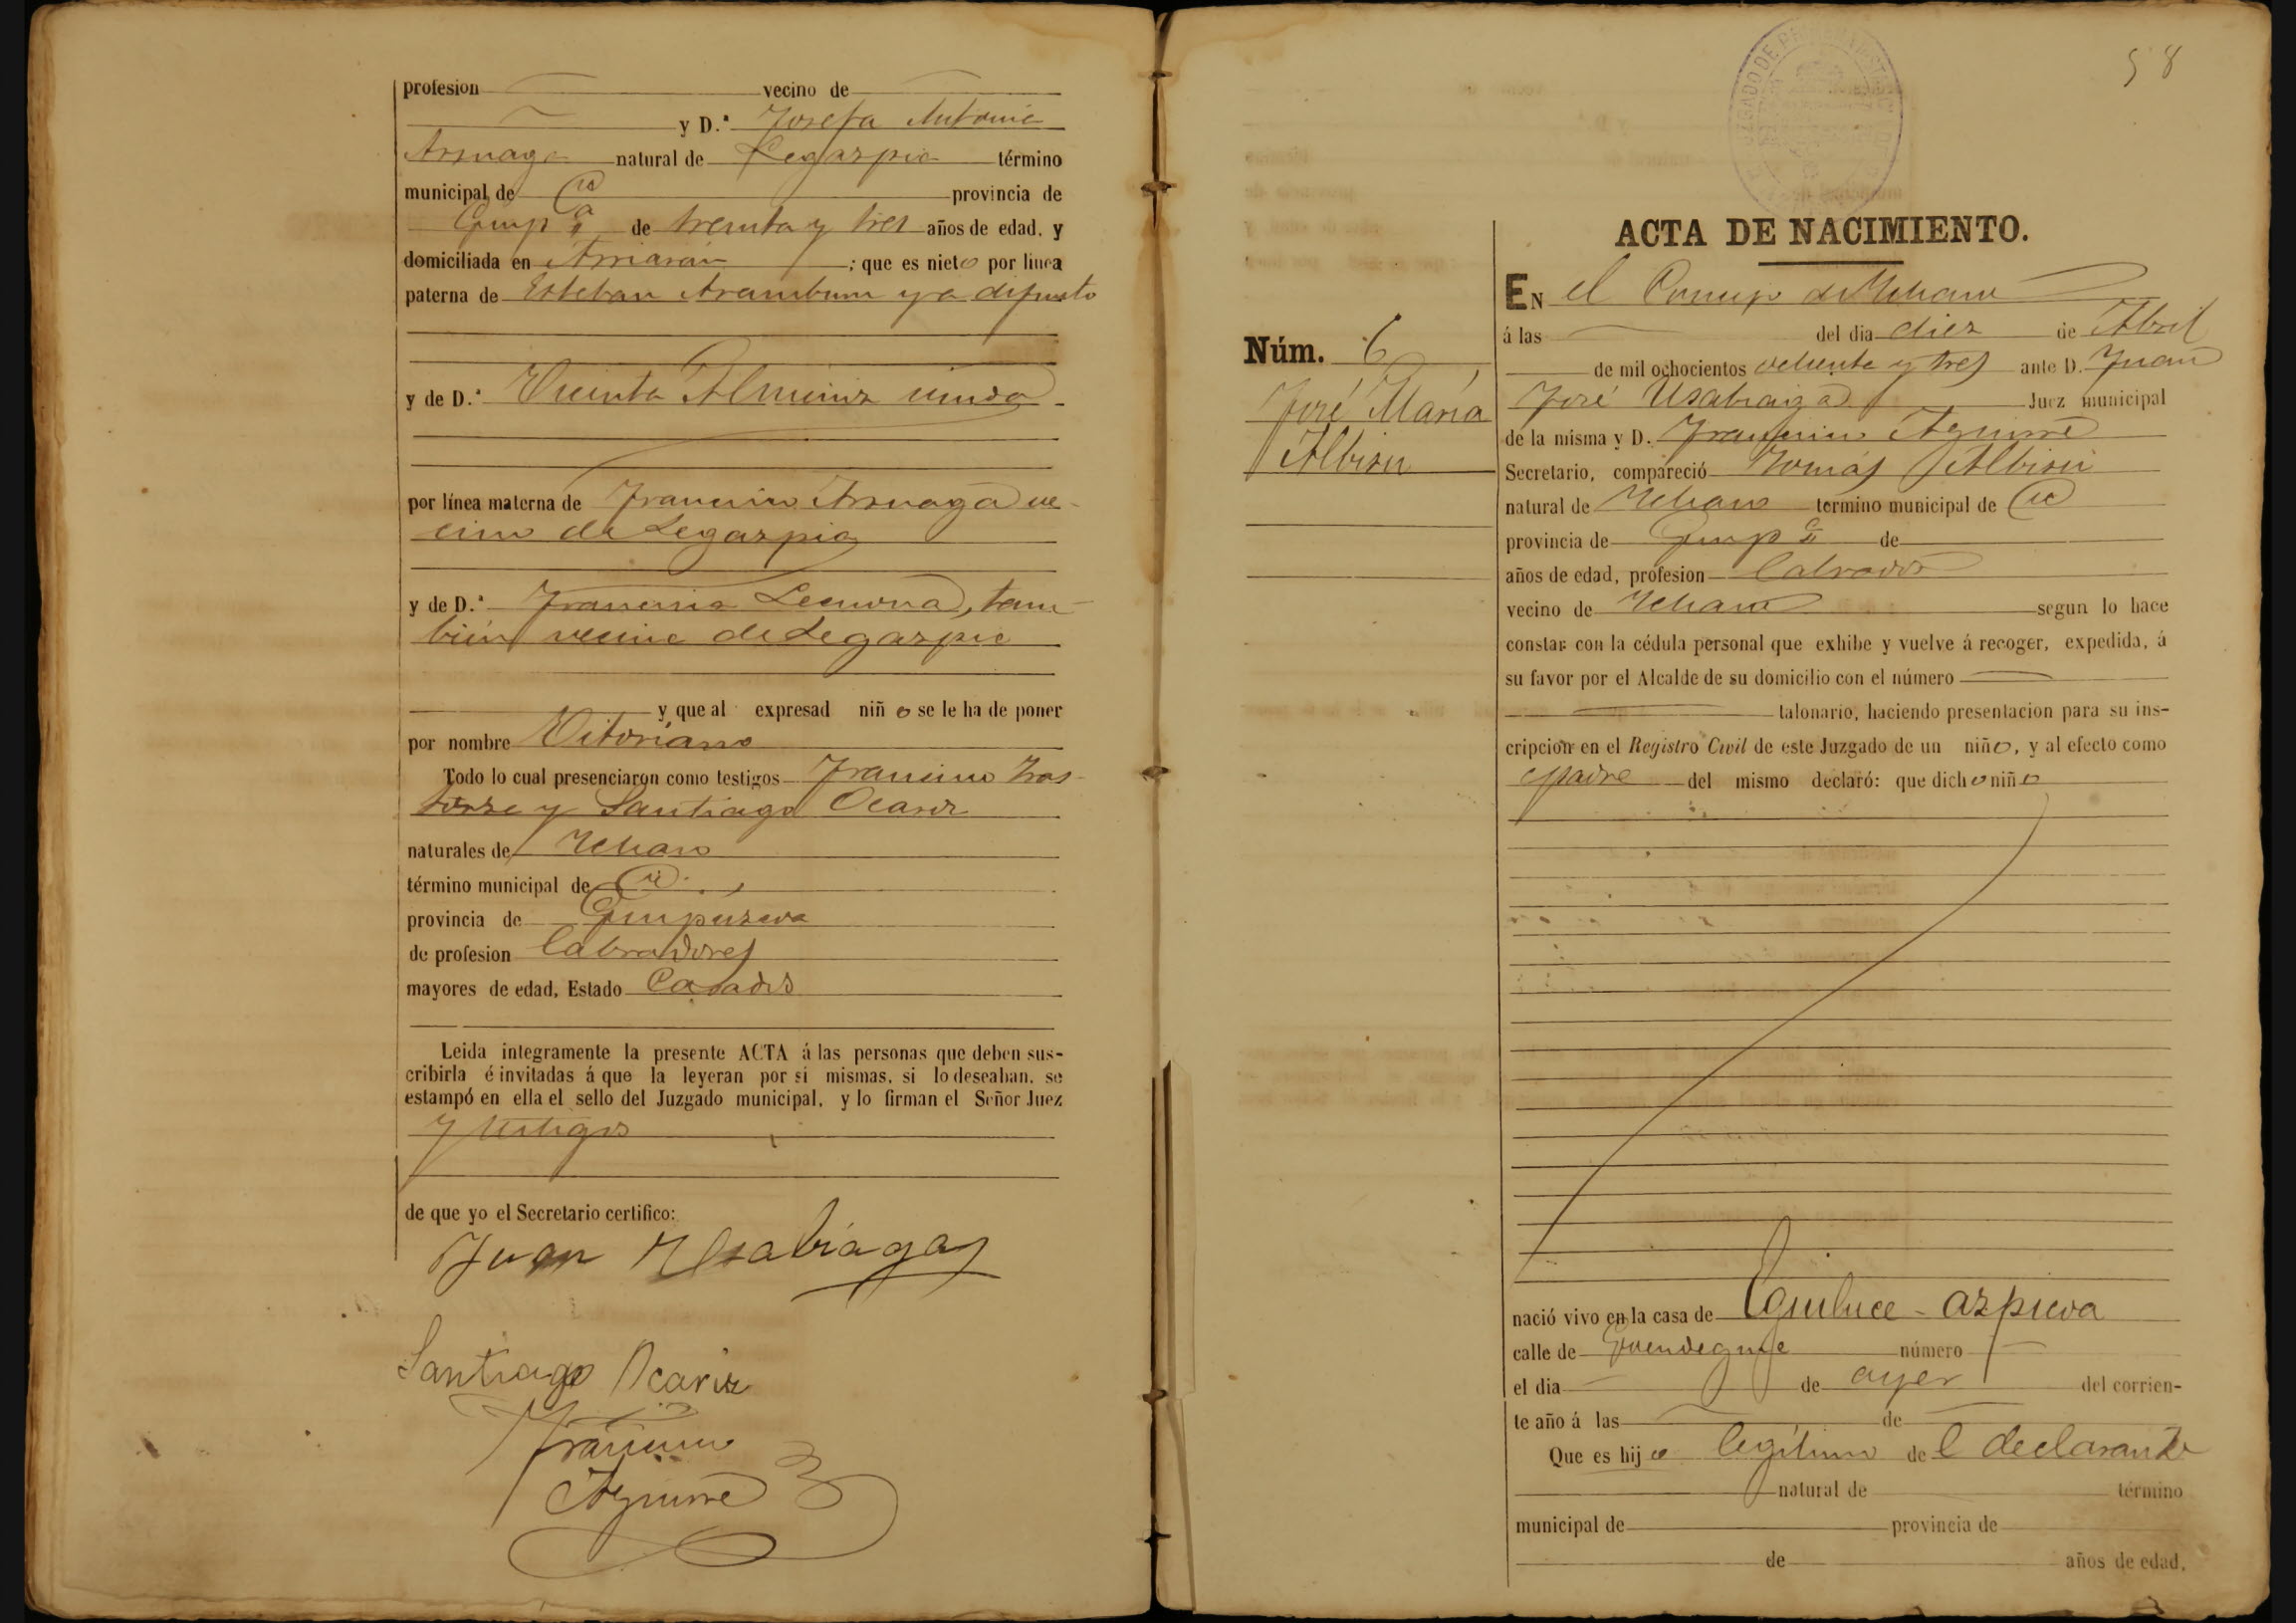 profesion vecino de
y D.ª Josefa Antonia
Arsuaga natural de Legazpia término
municipal de id provincia de
Guip.ª de treinta y tres años de edad, y
domiciliada en Arriarán ; que es nieto por línea
paterna de Esteban Aramburu ya difunto
y de D.ª Vicenta viuda
por línea materna de Francisco Arsuaga ve-
cino de Legazpia
y de D.ª Francisca Lecuona, tam-
bién vecina de Legazpia
y que al expresad niño se le ha de poner
por nombre Vitoriano
Todo lo cual presenciaron como testigos Francisco
y Santiago Ocariz
naturales de Ichaso
término municipal de id.
provincia de Guipúzcoa
de profesion labradores
mayores de edad, Estado Casados
Leida integramente la presente ACTA á las personas que deben sus-
cribirla é invitadas á que la leyeran por si mismas, si lo deseaban, se
estampó en ella el sello del Juzgado municipal, y lo firman el Señor Juez
y testigos
de que yo el Secretario certifico:
Juan Usabiaga
Santiago Ocariz
Francisco
Aguirre
58
ACTA DE NACIMIENTO.
Núm. 6
José María
Albisu
EN el Concejo de Ichaso
á las del dia diez de Abril
de mil ochocientos ochenta y tres ante D. Juan
José Usabiaga Juez municipal
de la misma y D. Francisco Aguirre
Secretario, compareció Tomás Albisu
natural de Ichaso termino municipal de id
provincia de Guip.ª de
años de edad, profesion labrador
vecino de Ichaso segun lo hace
constar con la cédula personal que exhibe y vuelve á recoger, expedida, á
su favor por el Alcalde de su domicilio con el número
talonario, haciendo presentacion para su ins-
cripcion en el Registro Civil de este Juzgado de un niño, y al efecto como
padre del mismo declaró: que dicho niño
nació vivo en la casa de Eguiluce-azpicoa
calle de número
el dia de ayer del corrien-
te año á las de
Que es hijo legítimo de l declarante
natural de término
municipal de provincia de
de años de edad,